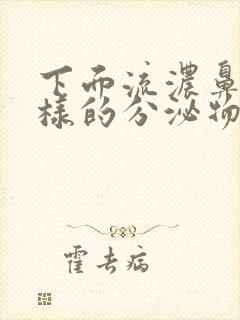 下面流濃鼻
樣的分泌物
霍去病